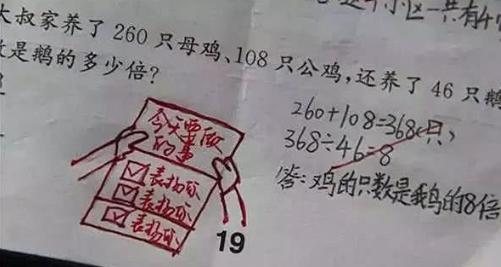 这个小区一共有4个
大叔家养了 260 只母鸡、108 只公鸡,还养了 46 只鹅
数是鹅的多少倍?
260+108=368(只)
368÷46=8
答:鸡的只数是我鸟的8倍
今天要做
的事
表扬你
表扬你
表扬你
19